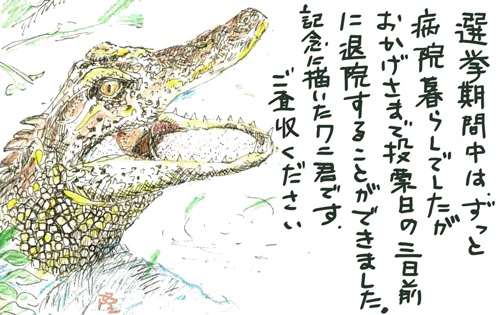 選挙期間中は、ずっと
病院暮らしでしたが
おかげさまで投票日の三日前
に退院することができました。
記念に描いたワニ君です.
ご査収ください